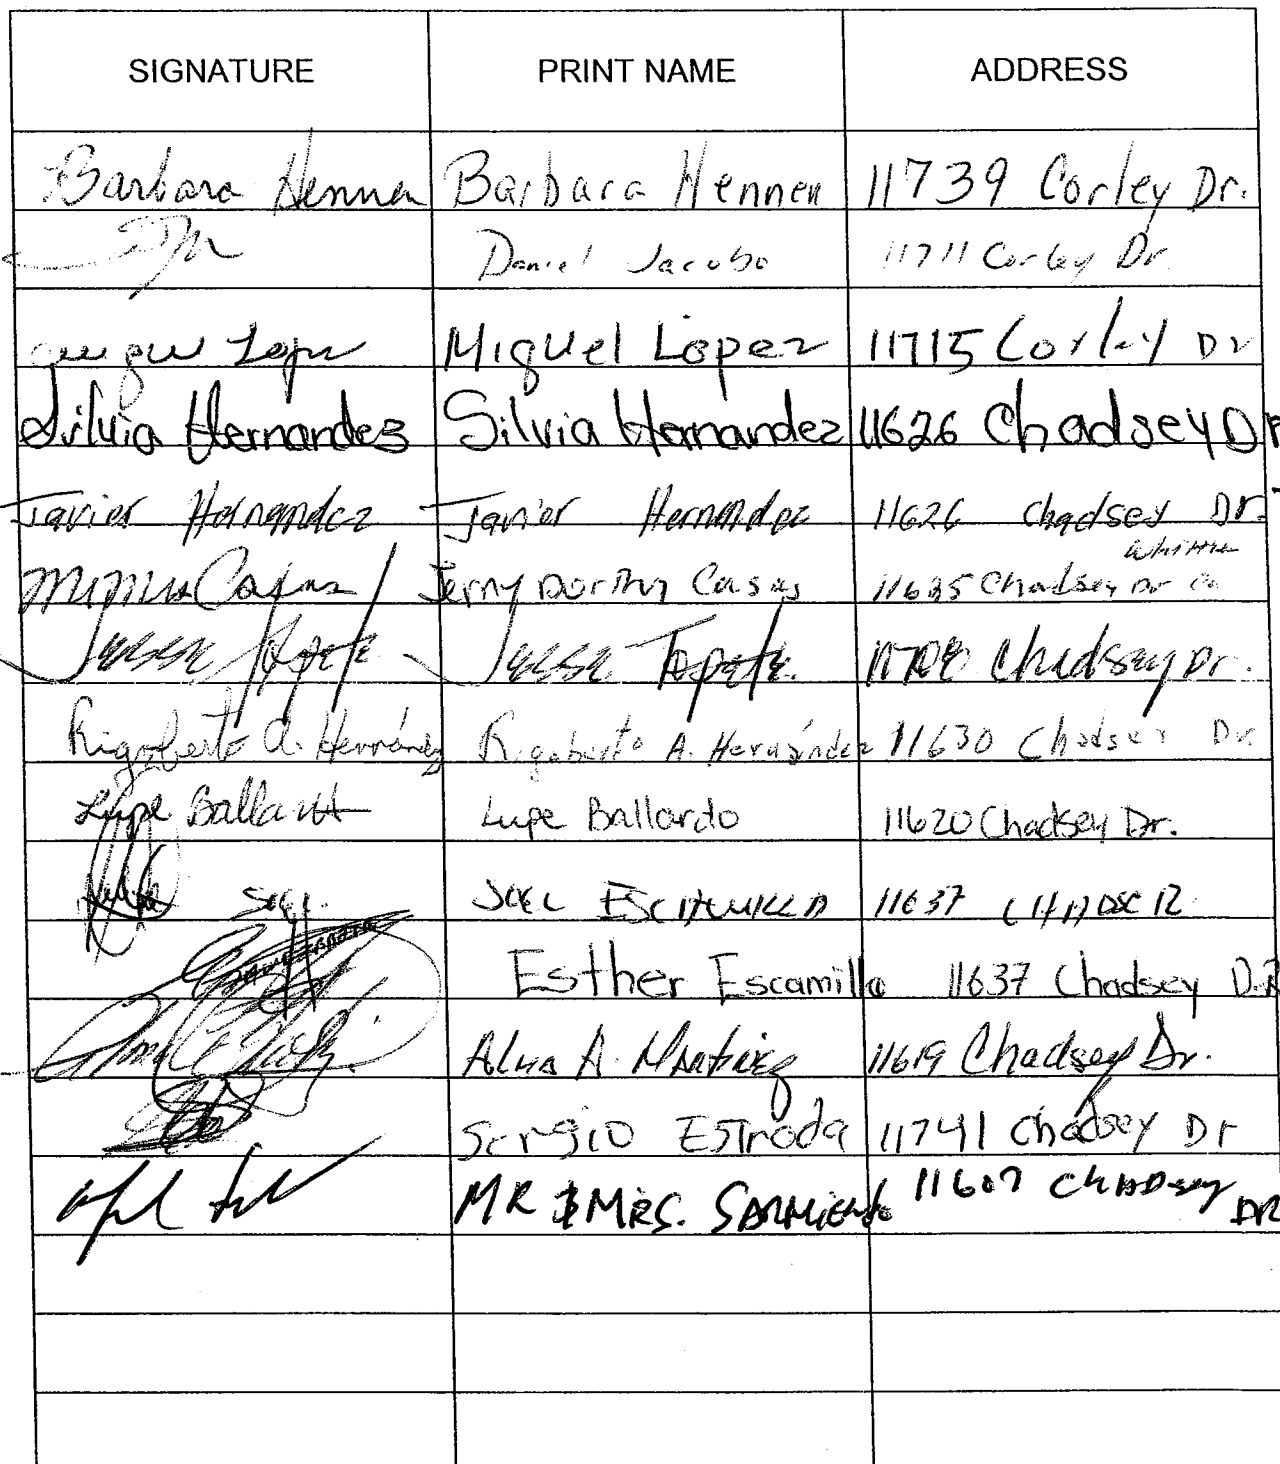 SIGNATURE PRINT NAME ADDRESS
Barbara Hennen Barbara Hennen 11739 Corley Dr.
Daniel Jacobo 11711 Corley Dr
Lopez Miguel Lopez 11715 Corley Dr
Silvia Hernandez Silvia Hernandez 11626 Chadsey DR
Javier Hernandez Javier Hernandez 11626 Chadsey Dr.
Whittier
Casas Jerry Dorthy Casas 11625 Chadsey Dr Ca
Jesse Topete Jesse Topete Chadsey Dr.
Rigoberto A. Hernández Rigoberto A. Hernández 11630 Chadsey Dr.
Lupe Ballardo Lupe Ballardo 11620 Chadsey Dr.
11637
Esther Escamilla 11637 Chadsey DR
Alva A. Martinez 11619 Chadsey Dr.
Sergio Estrada 11741 Chadsey Dr
MR & MRS. SARMIENTO 11607 CHADSEY DR